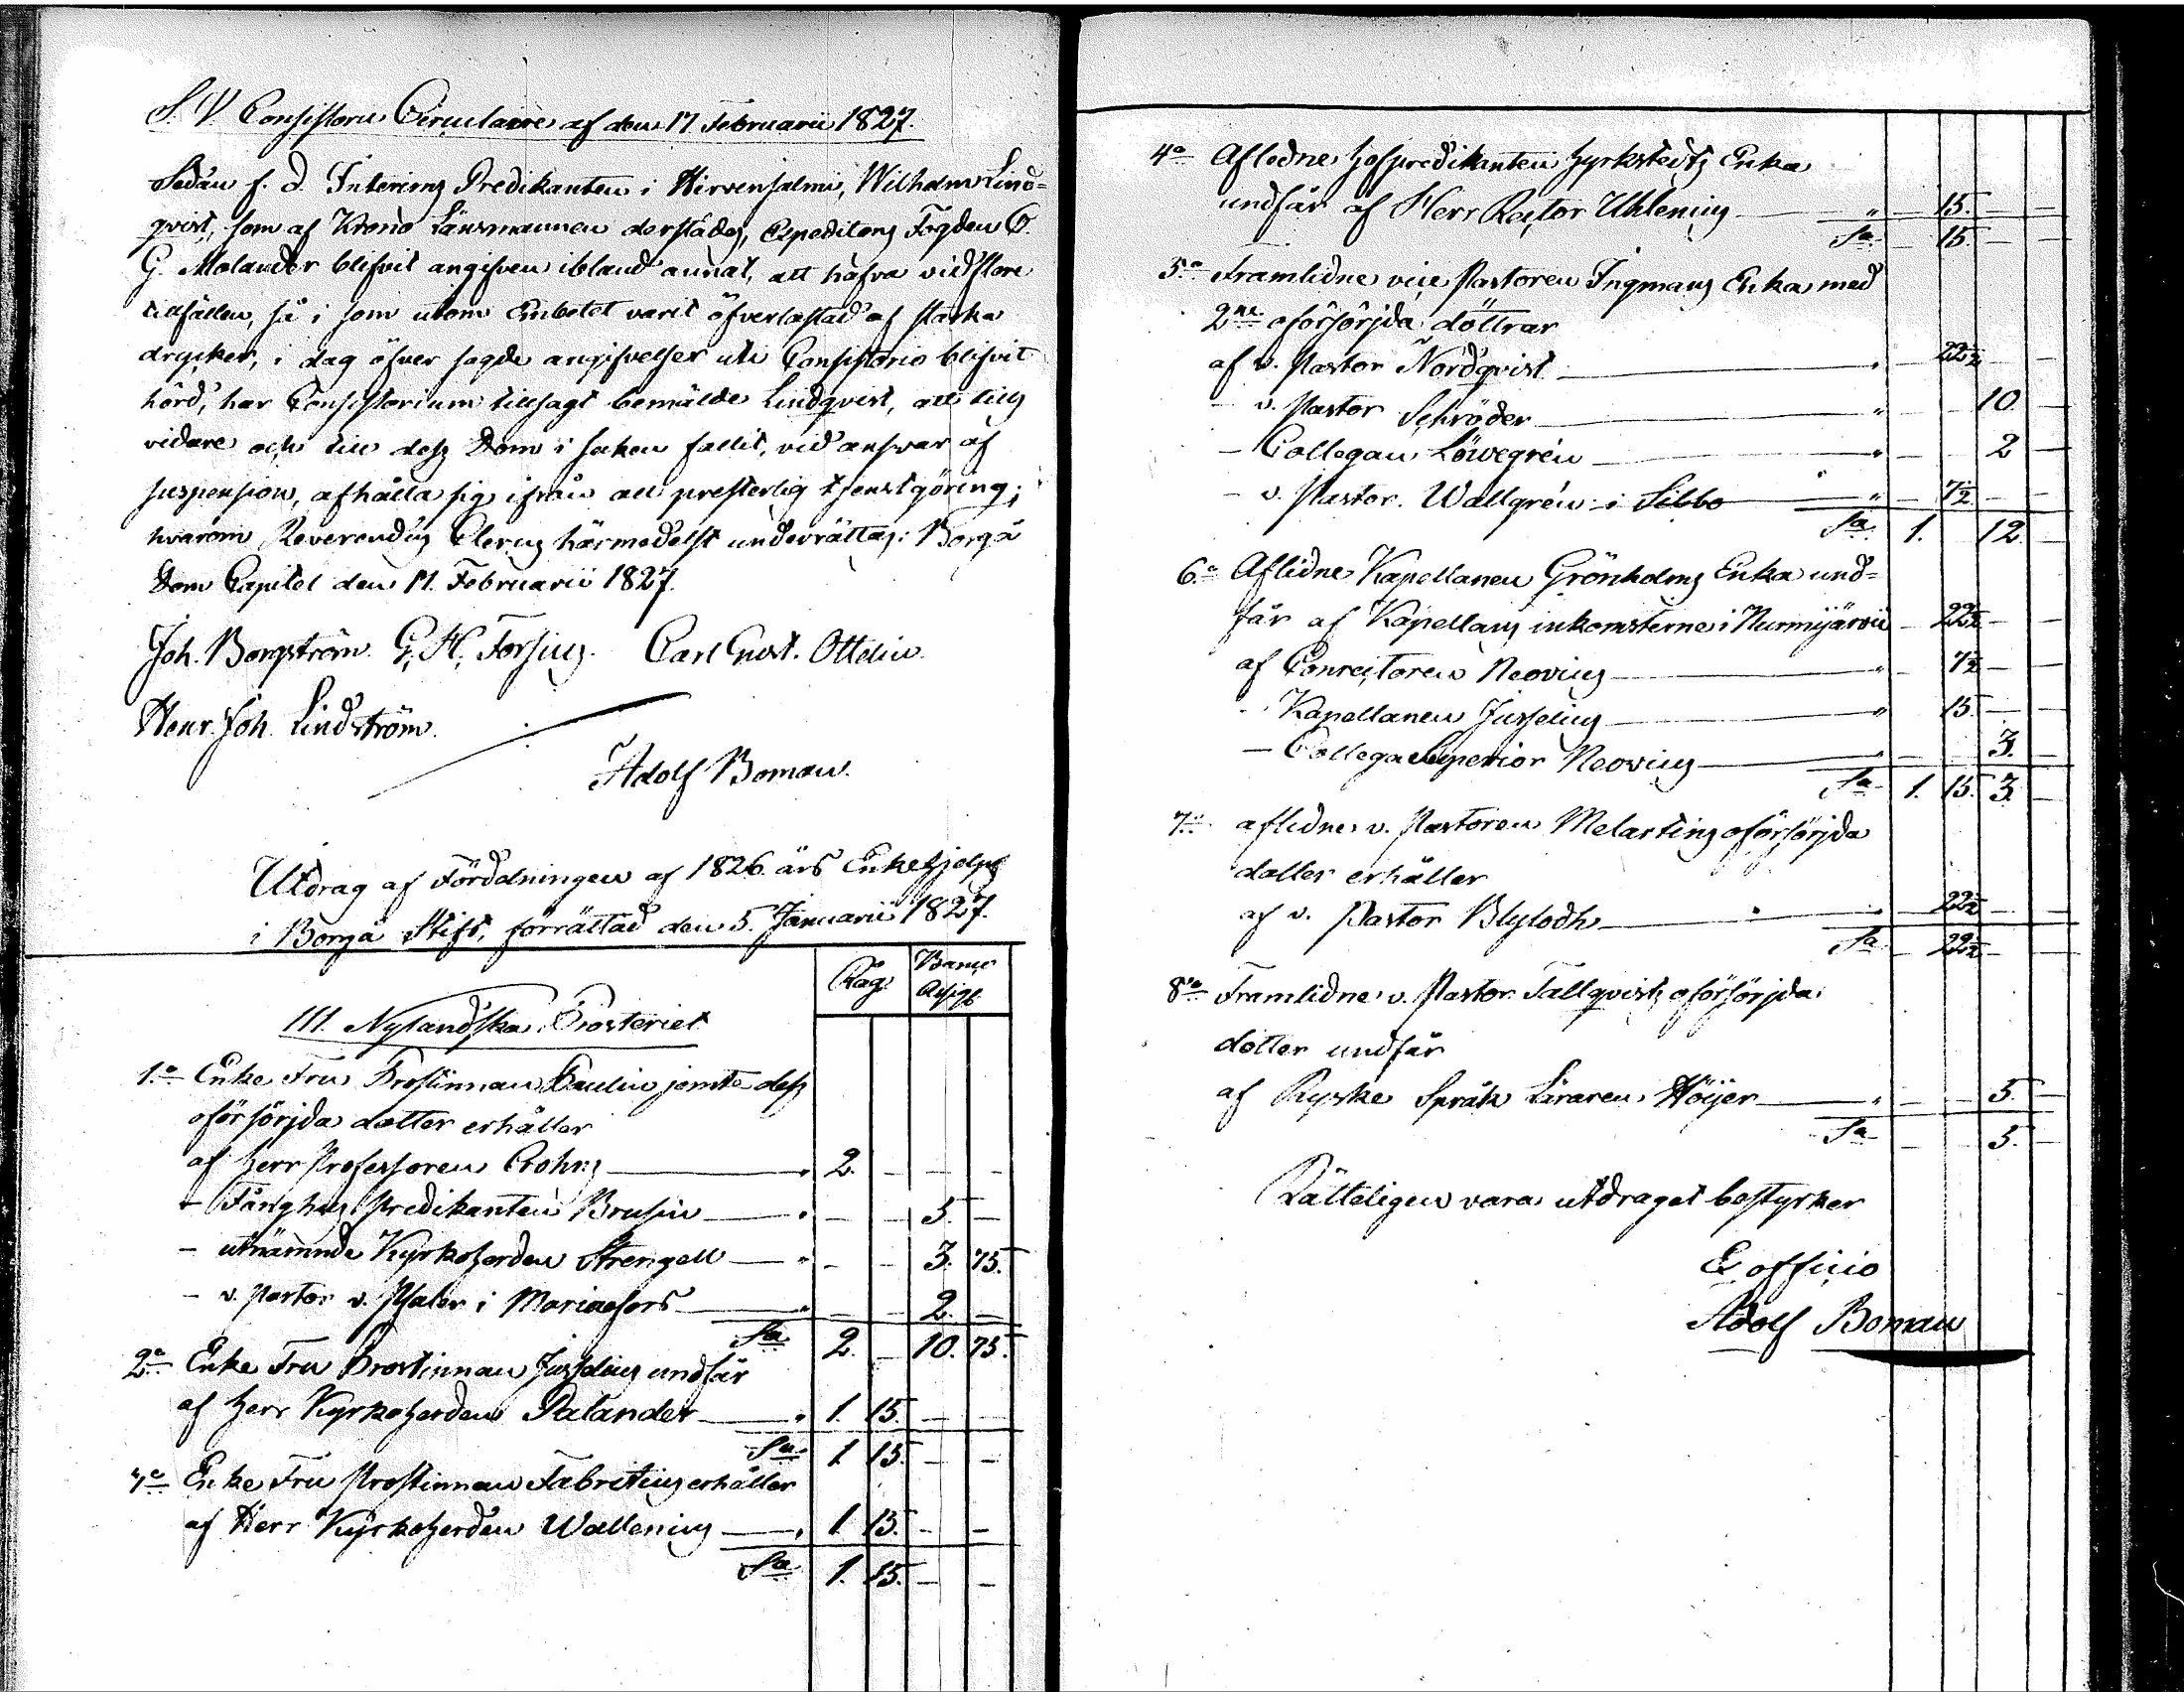 S. V. Consistorii Circulaire af den 17 Februarii 1827.
Sedan f. d. Interims Predikanten i Hirvensalmi, Wilhelm Lind=
qvist, som af Krono Länsmannen derstädes, Expeditions Fogden C.
G. Molander blifvit angifven ibland annat, att hafva vid flere
tillfällen, så i som utom Embetet varit öfverlastad af starka
drycker, i dag öfver sagde angifvelser uti Consistorio blifvit
hörd, har Consistorium tillsagt bemälde Lindqvist, att tills
vidare och till dess Dom i saken fallit, vid answar af
suspension, afhålla sig ifrån all presterlig tjenstgöring;
hvarom Reverendus Clerus härmedelst underrättas: Borgå
Dom Capitel den 17. Februarii 1827.
Joh. Borgström. G. H. Forsius. Carl Gust. Ottelin.
Henr. Joh. Lindström.
Adolf Boman.
Utdrag af Fördelningen af 1826 års Enkehjelp
i Borgå Stift, förrättad den 5. Januarii 1827.
Rag. Banco Assign.
III. Nylandska Prosteriet
1.o Enke Fru Prostinnan Paulin jemte dess
oförsörjda dotter erhåller
af Herr Professoren Crohns 2. — — —
— Fånghus Predikanten Brusin — — 5. —
— utnämnde Kyrkoherden Strengell — — 3. 75.
— v. Pastor v. Pfaler i Mariaefors — — 2. —
Sa 2. — 10. 75.
2.o Enke Fru Prostinnan Jusselius undfår
af Herr Kyrkoherden Palander 1. 15. — —
Sa 1. 15. — —
3.o Enke Fru Prostinnan Fabritius erhåller
af Herr Kyrkoherden Wallenius 1. 15. — —
Sa 1. 15. — —
4.o Aflidne Hofpredikanten Hyrkstedts Enka
undfår af Herr Rector Uhlenius — 15. — —
Sa — 15. — —
5.o Framlidne vice Pastoren Ingmans Enka med
2ne oförsörjda döttrar
af v. Pastor Nordqvist — 22½ — —
— v. Pastor Schröder — — 10. —
— Collegan Löwegrén — — 2 —
— v. Pastor Wallgrén i Sibbo — 7½ — —
Sa 1. 12. —
6.o Aflidne Kapellanen Grönholms Enka und=
får af Kapellans inkomsterne i Nurmijärvi — 22½ — —
af Conrectoren Neovius 7½ — —
- Kapellanen Jusselius 15. — —
— Collega Superior Neovius — 3. —
Sa 1. 15. 3. —
7.o aflidne v. Pastoren Melartins oförsörjda
dotter erhåller
af v. Pastor Blylodh 22½ — —
Sa — 22½ — —
8.o Framlidne v. Pastor Tallqvists oförsörjda
dotter undfår
af Ryske Språk Läraren Höijer — — 5. —
Sa — 5. —
Rätteligen vara utdraget bestyrker
Ex officio
Adolf Boman